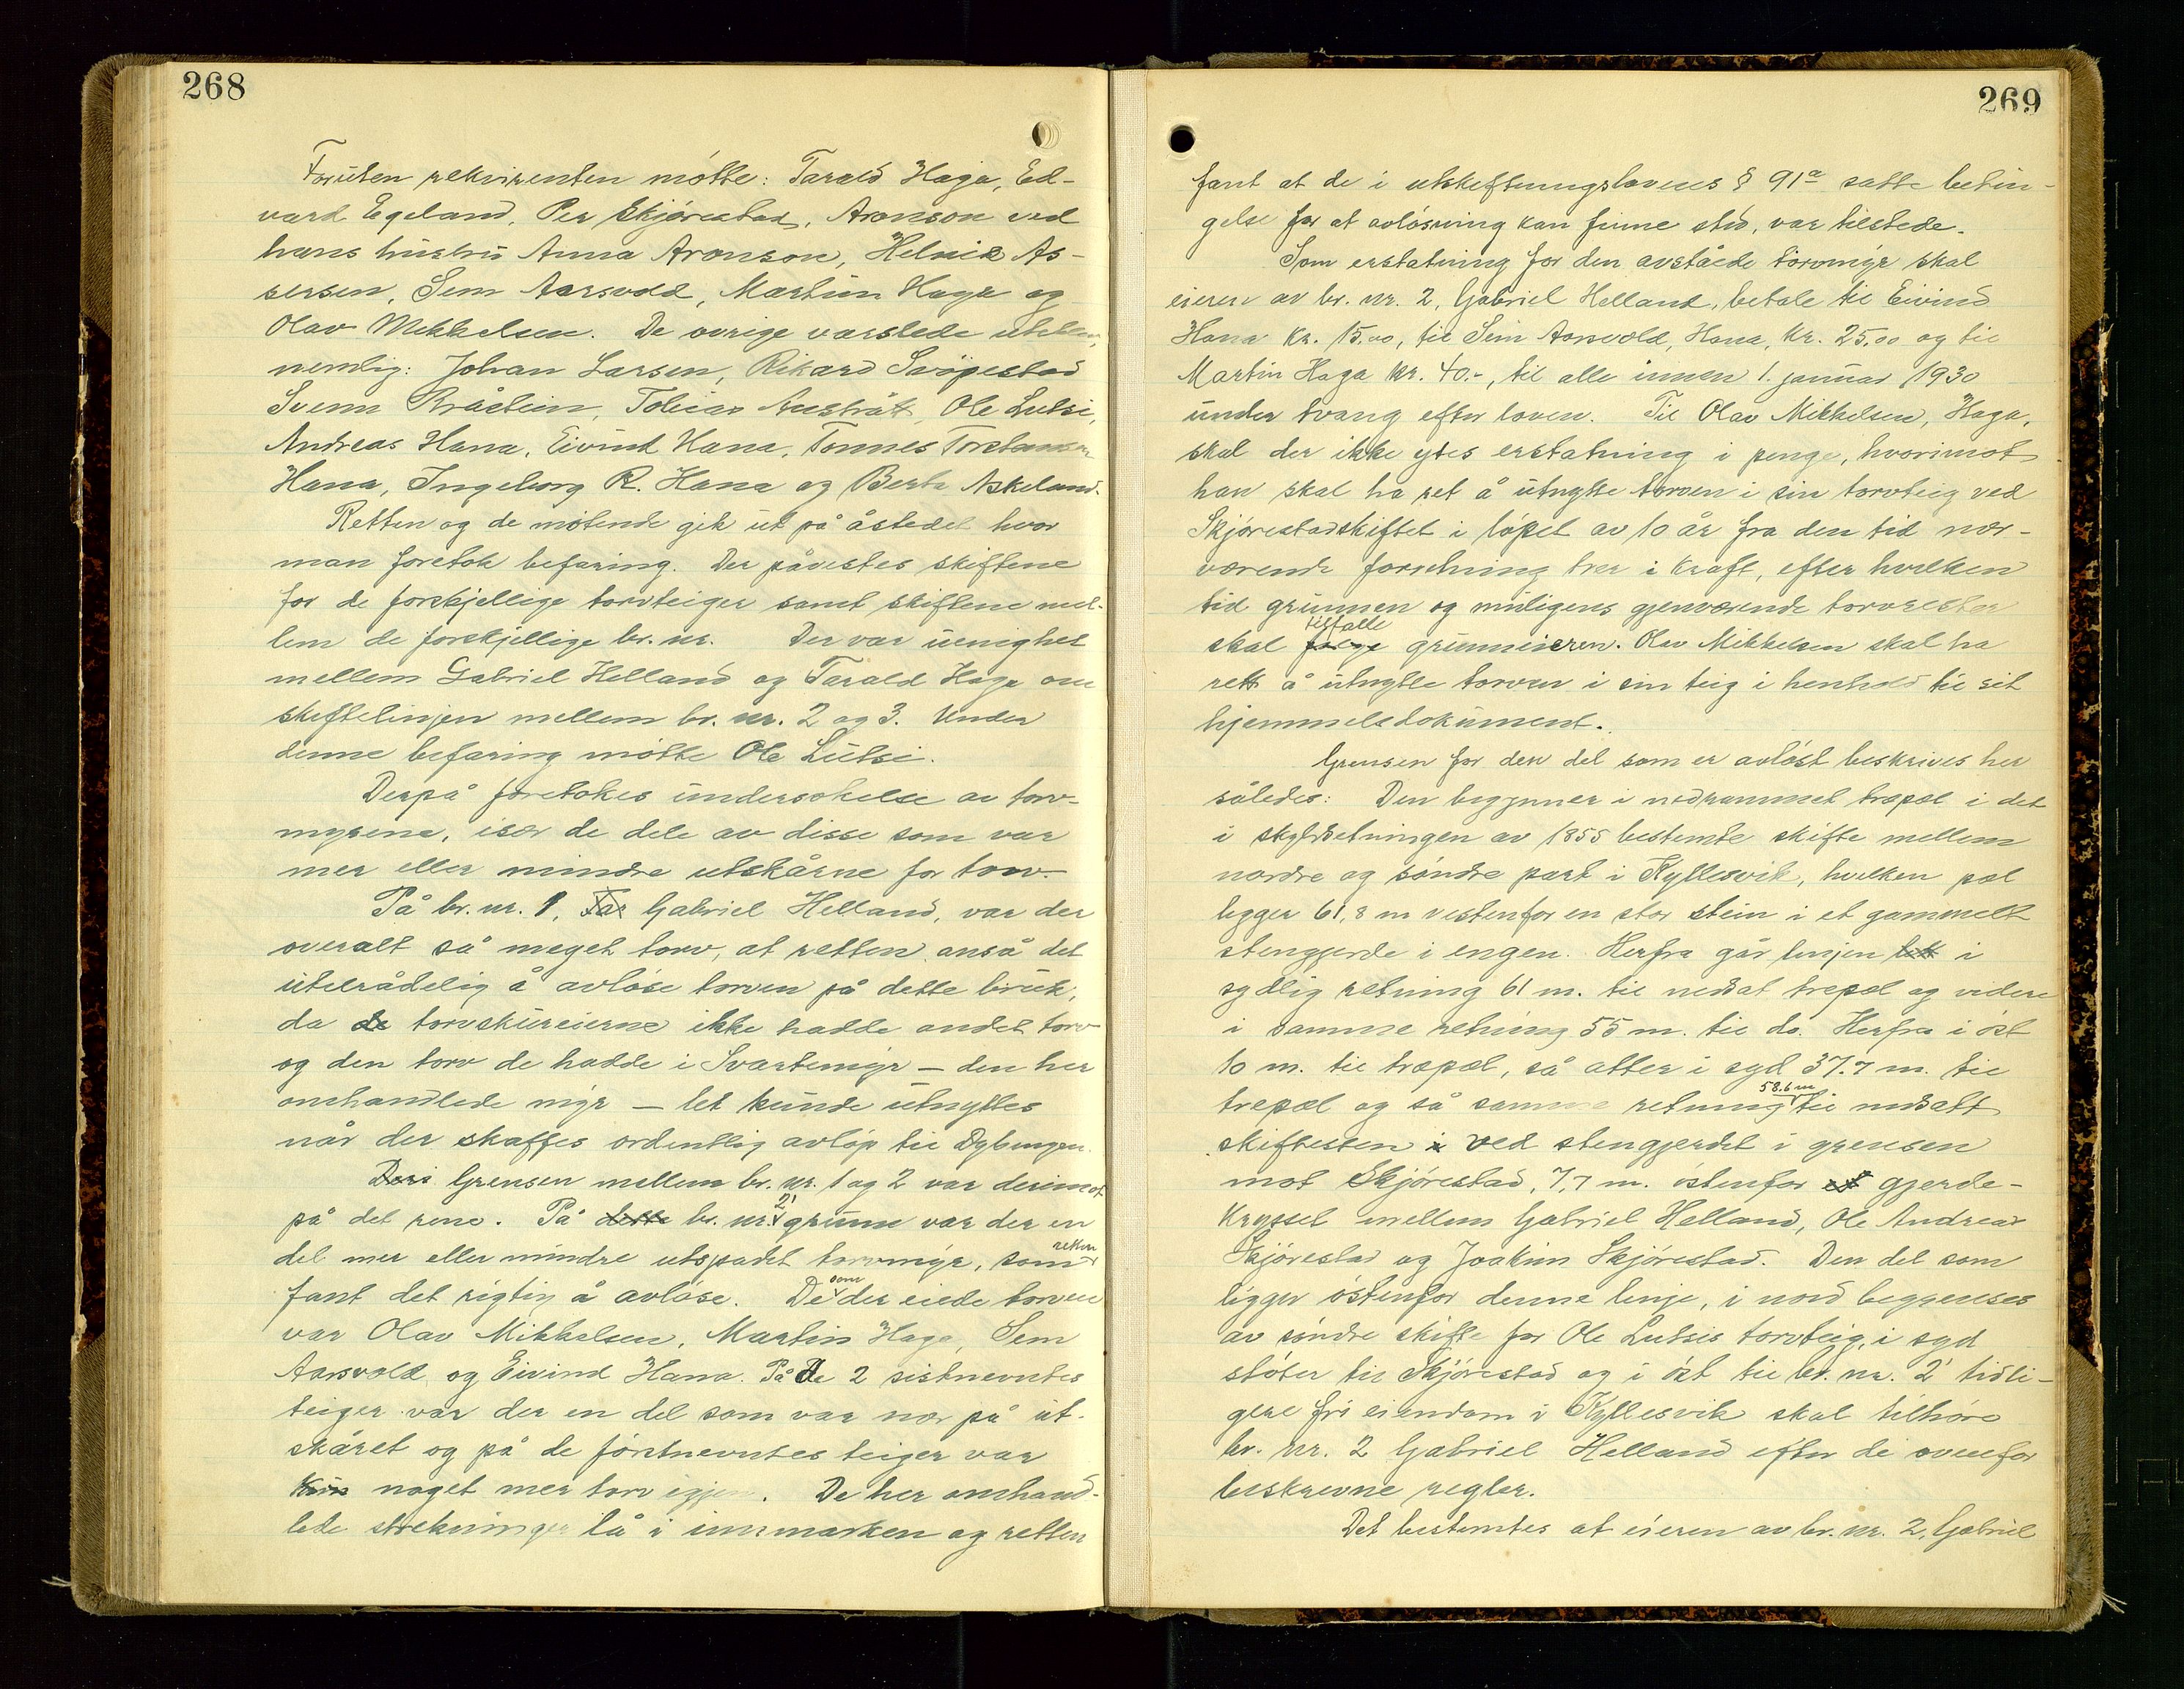 268
Foruten rekvirenten møtte: Tarald Haga, Ed-
vard Egeland, Per Skjørestad, Aronson ved
hans hustru Anna Aronson, Helmik As-
sersen, Sem Aarsvold, Martin Haga og
Olav Mikkelsen. De øvrige varslede uteblev,
nemlig: Johan Larsen, Rikard Svøpestad
Svenn Kråstein, Tobias Austråt, Ole Lutsi,
Andreas Hana, Eivind Hana, Tønnes Torstensen
Hana, Ingeborg R. Hana og Berta Askeland.
Retten og de møtende gik ut på åstedet hvor
man foretok befaring. Der påvistes skiftene
for de forskjellige torvteiger samt skiftene mel-
lem de forskjellige br. nr. Der var uenighet
mellem Gabriel Helland og Tarald Haga om
skiftelinjen mellem br. nr. 2 og 3. Under
denne befaring møtte Ole Lutsi.
Derpå foretokes undersøkelse av torv-
myrene, især de dele av disse som var
mer eller mindre utskårne for torv.
På br. nr. 1, Gabriel Helland, var der
overalt så meget torv, at retten anså det
utilrådelig å avløse torven på dette bruk,
da de torvskureierne ikke hadde andet torv
og den torv de hadde i Svartemyr – den her
omhandlede myr – let kunde utnyttes
når der skaffes ordentlig avløp til Dybingen.
Deri Grensen mellem br. nr. 1 og 2 var derimot
på det rene. På dette br. nr. 2' grunn var der en
del mer eller mindre utspadet torvmyr, som retten
fant det rigtig å avløse. De som der eiede torven
var Olav Mikkelsen, Martin Haga, Sem
Aarsvold og Eivind Hana. På De 2 sistnevntes
teiger var der en del som var nær på ut-
skåret og på de førstnevntes teiger var
kun noget mer torv igjen. De her omhand-
lede strekninger lå i innmarken og retten
269
fant at de i utskiftningslovens § 91a satte betin-
gelse for at avløsning kan finne sted, var tilstede.
Som erstatning for den avståede torvmyr skal
eieren av br. nr. 2, Gabriel Helland, betale til Eivind
Hana kr. 15.00, til Sem Aarsvold, Hana, kr. 25.00 og til
Martin Haga kr. 40.-, til alle innen 1. januar 1930
under tvang efter loven. Til Olav Mikkelsen, Haga,
skal der ikke ytes erstatning i penge, hvorimot
han skal ha ret å utnytte torven i sin torvteig ved
Skjørestadskiftet i løpet av 10 år fra den tid nær-
værende forretning trær i kraft, efter hvilken
tid grunnen og muligens gjenværende torvrester
skal følge tilfalle grunneieren. Olav Mikkelsen skal ha
rett å utnytte torven i sin teig i henhold til sit
hjemmelsdokument.
Grensen for den del som er avløst beskrives her
således: Den begynner i nedrammet træpæl i det
i skyldsetningen av 1855 bestemte skifte mellem
nordre og søndre part i Kyllesvik, hvilken pæl
ligger 61,8 m vestenfor en stor stein i et gammelt
stengjerde i engen. Herfra går linjen i
sydlig retning 61 m. til nedsat trepæl og videre
i samme retning 55 m. til do. Herfra i øst
10 m. til træpæl, så atter i syd 37.7 m. til
trepæl og så samme retning 58.6 m til nedsatt
skiftesten i ved stengjerdet i grensen
mot Skjørestad, 7,7 m. østenfor et gjerde-
krysset mellem Gabriel Helland, Ole Andreas
Skjørestad og Joakim Skjørestad. Den del som
ligger østenfor denne linje, i nord begrenses
av søndre skifte for Ole Lutsis torvteig, i syd
støter til Skjørestad og i øst til br. nr. 2' tidli-
gere fri eiendom i Kyllesvik skal tilhøre
br. nr. 2 Gabriel Helland efter de ovenfor
beskrevne regler.
Det bestemtes at eieren av br. nr. 2, Gabriel